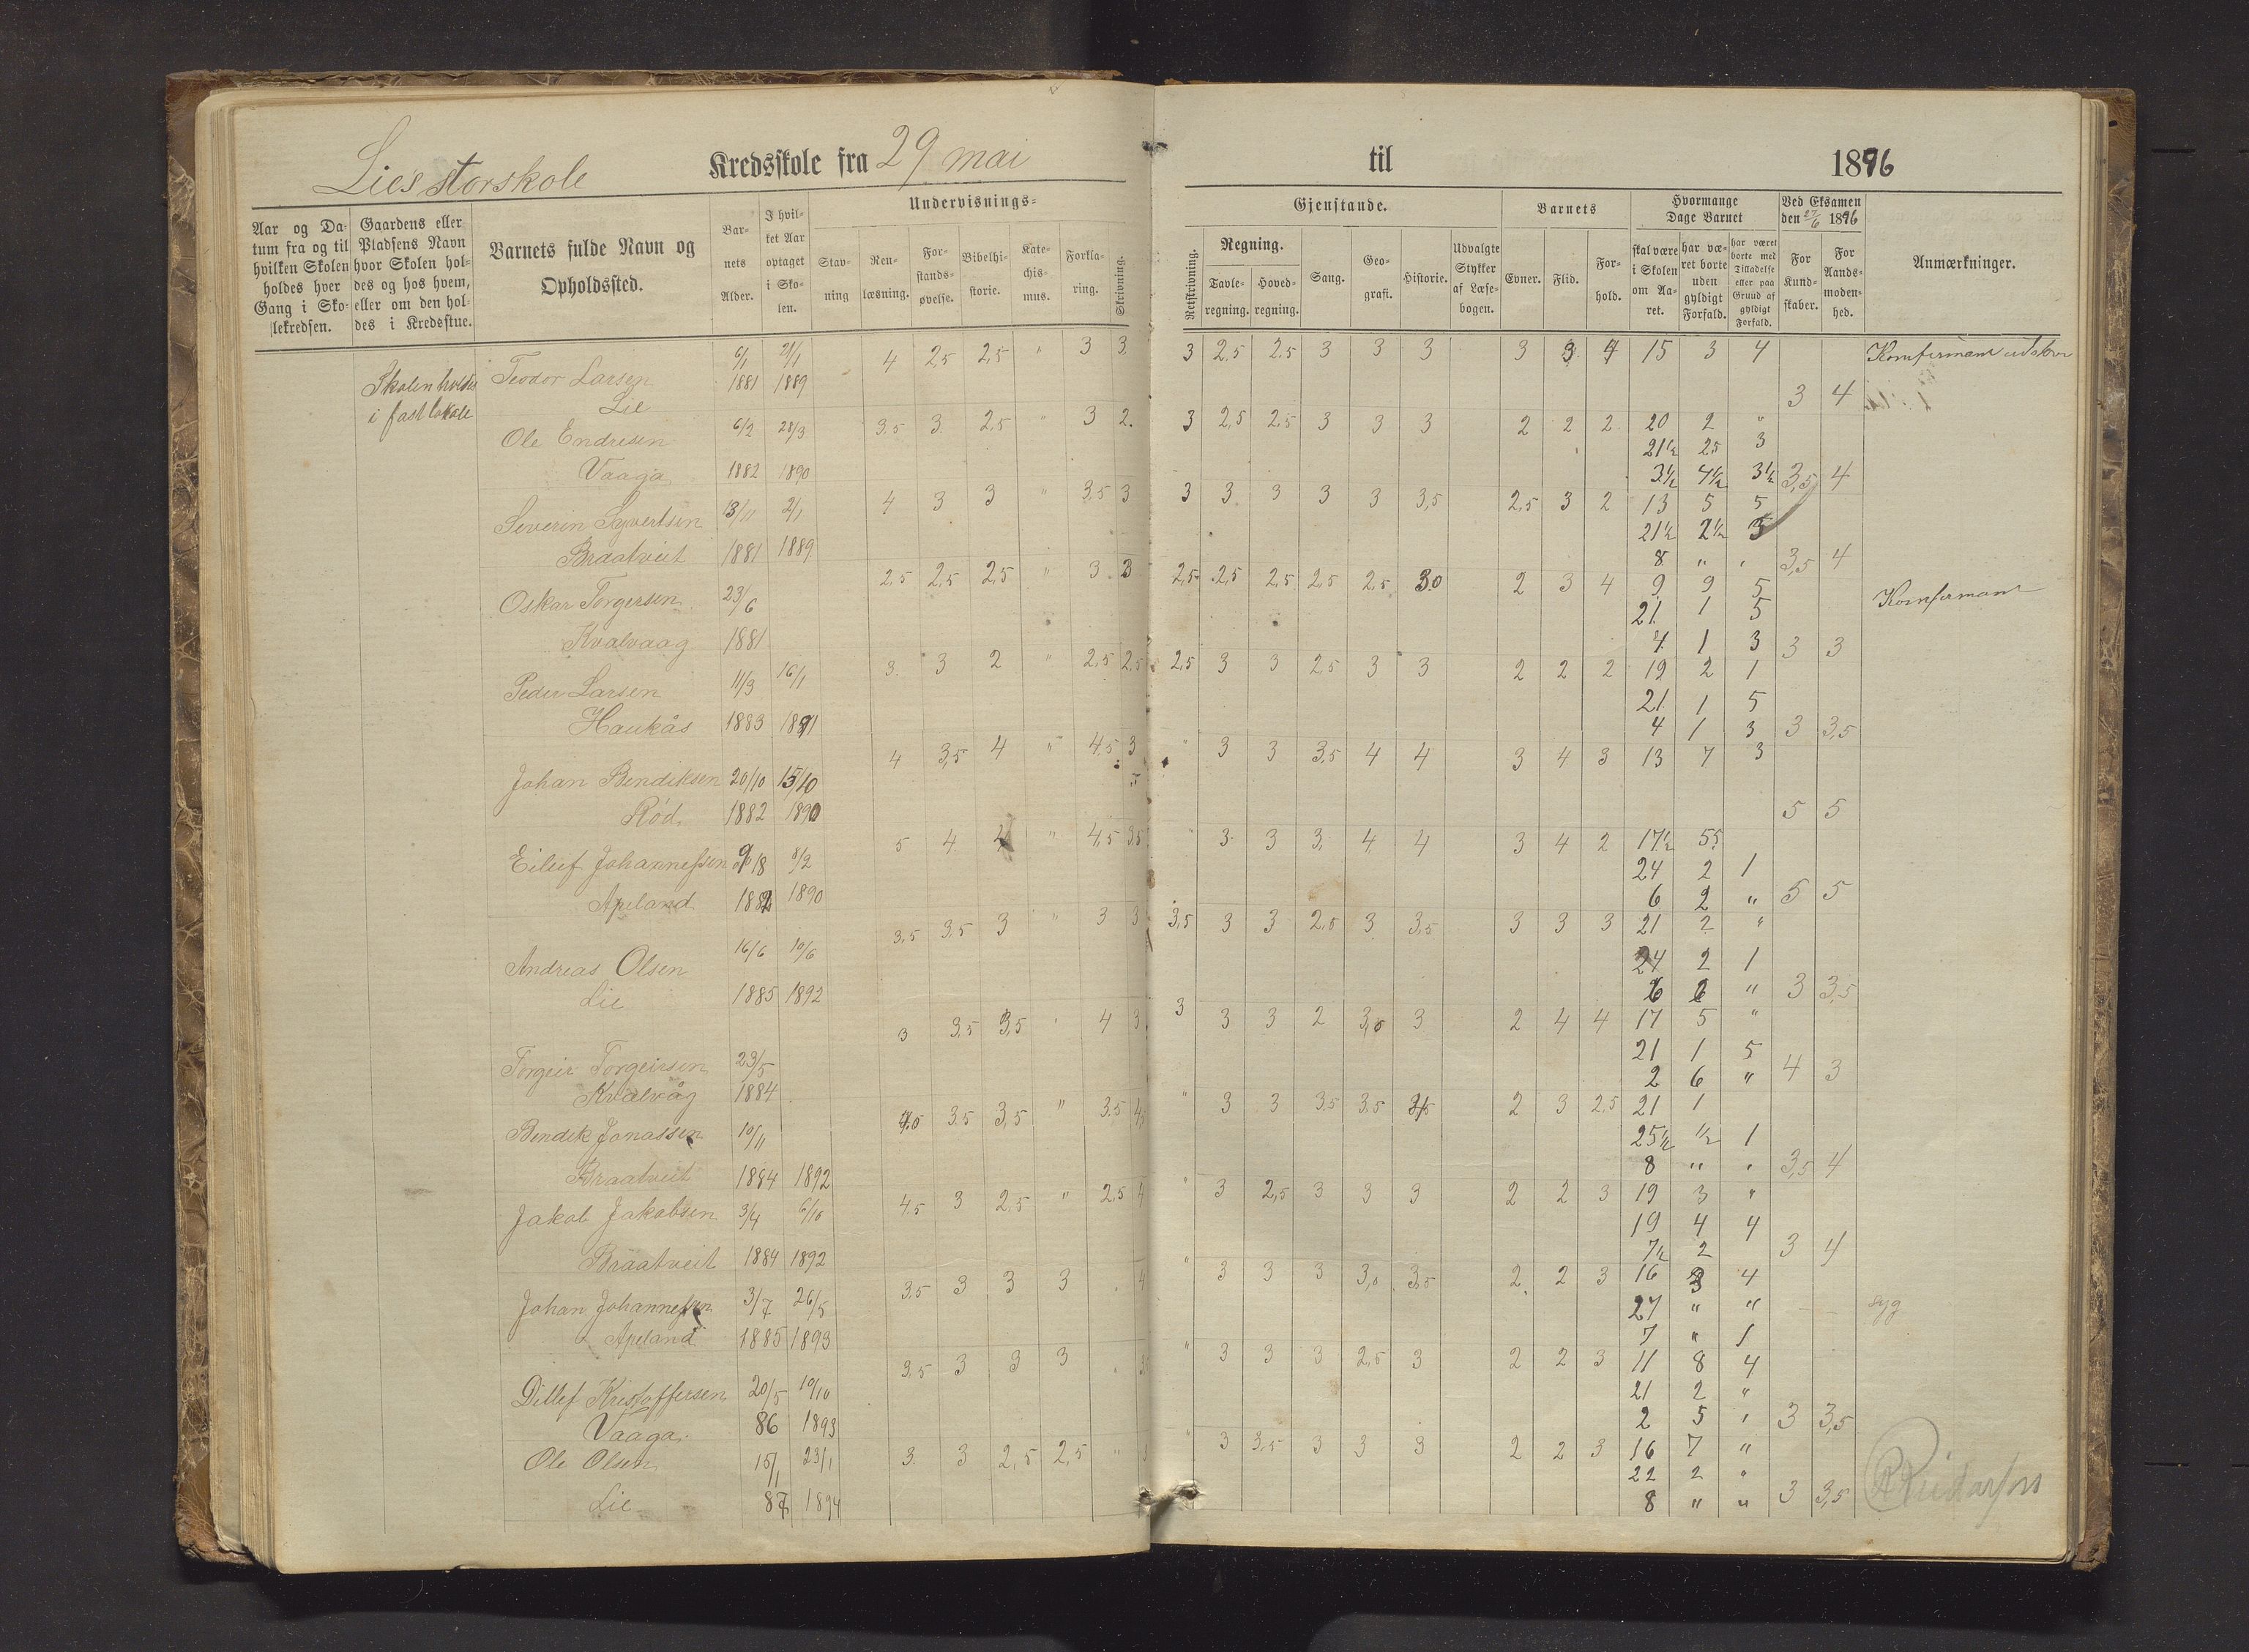 Lies storskole Kredsskole fra 29 mai til 1896
Aar og Da-
tum fra og til
hvilken Skolen
holdes hver
Gang i Sko-
lekredsen.
Gaardens eller
Pladsens Navn
hvor Skolen hol-
des og hos hvem,
eller om den hol-
des i Kredsstue.
Barnets fulde Navn og
Opholdssted.
Bar-
nets
Alder.
I hvil-
ket Aar
optaget
i Sko-
len.
Undervisnings-
Stav-
ning
Ren-
læsning.
For-
stands-
øvelse.
Bibelhi-
storie.
Kate-
chis-
mus.
Forkla-
ring.
Skrivning.
Gjenstande.
Retskrivning.
Regning.
Tavle-
regning.
Hoved-
regning.
Sang.
Geo-
grafi.
Historie.
Udvalgte
Stykker
af Læse-
bogen.
Barnets
Evner.
Flid.
For-
hold.
Hvormange
Dage Barnet
skal være
i Skolen
om Aa-
ret.
har væ-
ret borte
uden
gyldigt
Forfald.
har været
borte med
Tilladelse
eller paa
Grund af
gyldigt
Forfald.
Ved Eksamen
den 27/6 1896
For
Kund-
skaber.
For
Aands-
moden-
hed.
Anmærkninger.
Skolen holdes
i fast lokale
Teodor Larsen 6/1 21/1 4 2,5 2,5 " 3 3 3 2,5 2,5 3 3 3 3 3 4 15 3 4 Komfirmant
Lie 1881 1889 3 4
Ole Endresen 6/2 28/3 3,5 3 2,5 " 3 2. 3 2,5 2,5 3 3 3 2 2 2 20 2 "
21½ 2,5 3
Vaaga 1882 1890 3½ 4½ 3½ 3,5 4
Severin Syvertsen 13/11 2/1 4 3 3 " 3,5 3 3 3 3 3 3 3,5 2,5 3 2 13 5 5
21½ 2½ 5
Braatveit 1881 1889 8 " " 3,5 4
Oskar Torgersen 23/6 2,5 2,5 2,5 " 3 3 2,5 2,5 2,5 2,5 2,5 3,0 2 3 4 9 9 5 Komfirmant
21 1 5
Kvalvaag 1881 4 1 3 3 3
Peder Larsen 11/3 16/1 3 3 2 " 2,5 2,5 2,5 3 3 2,5 3 3 2 2 2 19 2 1
21 1 5
Haukås 1883 1891 4 1 3 3 3,5
Johan Bendiksen 20/10 15/10 4 3,5 4 " 4,5 3,5 " 3 3 3,5 4 4 3 4 3 13 7 3
Röd 1882 1890 5 5
Eilief Johannessen 9/8 8/2 5 4 4 " 4,5 3,5 " 3 3 3 4 4 3 4 2 17½ 5,5
24 2 1
Apeland 1882 1890 6 2 " 5 5
Andreas Olsen 16/6 10/6 3,5 3,5 3 " 3 3 3,5 3 3 2,5 3 3,5 3 3 3 21 2 "
24 2 1
Lie 1885 1892 6 2 " 3 3,5
Torgeir Torgeirsen 23/5 3 3,5 3,5 " 4 3 3 3 3 2 3,0 3 2 4 4 17 5 "
21 1 5
Kvalvåg 1884 2 6 " 4 3
Bendik Jonassen 10/11 4,0 3,5 3,5 " 3,5 4,5 " 3 3 3,5 3,5 3,5 2 3 2,5 21 1
25½ ½ 1
Braatveit 1884 1892 8 " " 3,5 4
Jakob Jakobsen 3/4 6/10 4,5 3 2,5 " 2,5 4 " 3 2,5 3 3 3 2 2 3 19 3 "
19 4 4
Braatveit 1884 1892 7½ 2 3 4
Johan Johannessen 3/7 26/5 3,5 3 3 3 . 4 " 3 3 3 3,0 3,5 2 2 3 16 3 4
27 " " — — syg
Apeland 1885 1893 7 " 1
Ditlef Kristoffersen 20/5 10/10 3,5 3 3 3 . 3 " 3 3 3 2,5 3 2 2 3 11 8 4
21 2 "
Vaaga 86 1893 2 5 " 3 3,5
Ole Olsen 15/1 23/1 3 3 2,5 2,5 " 3 " 3 3,5 3 3 3 2 2 3 16 7 "
22 2 "
Lie 87 1894 8 " " 3 3,5